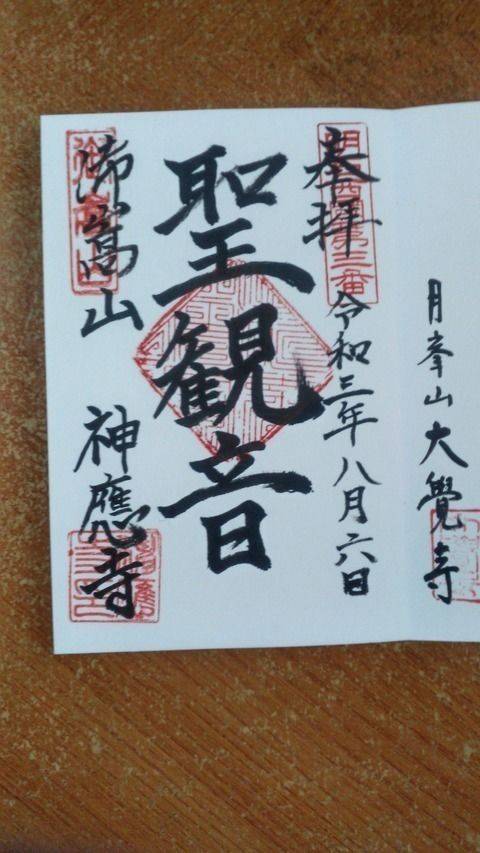 月峯山大覺寺
奉拝
令和三年八月六日
聖観音
嵩山
神應寺